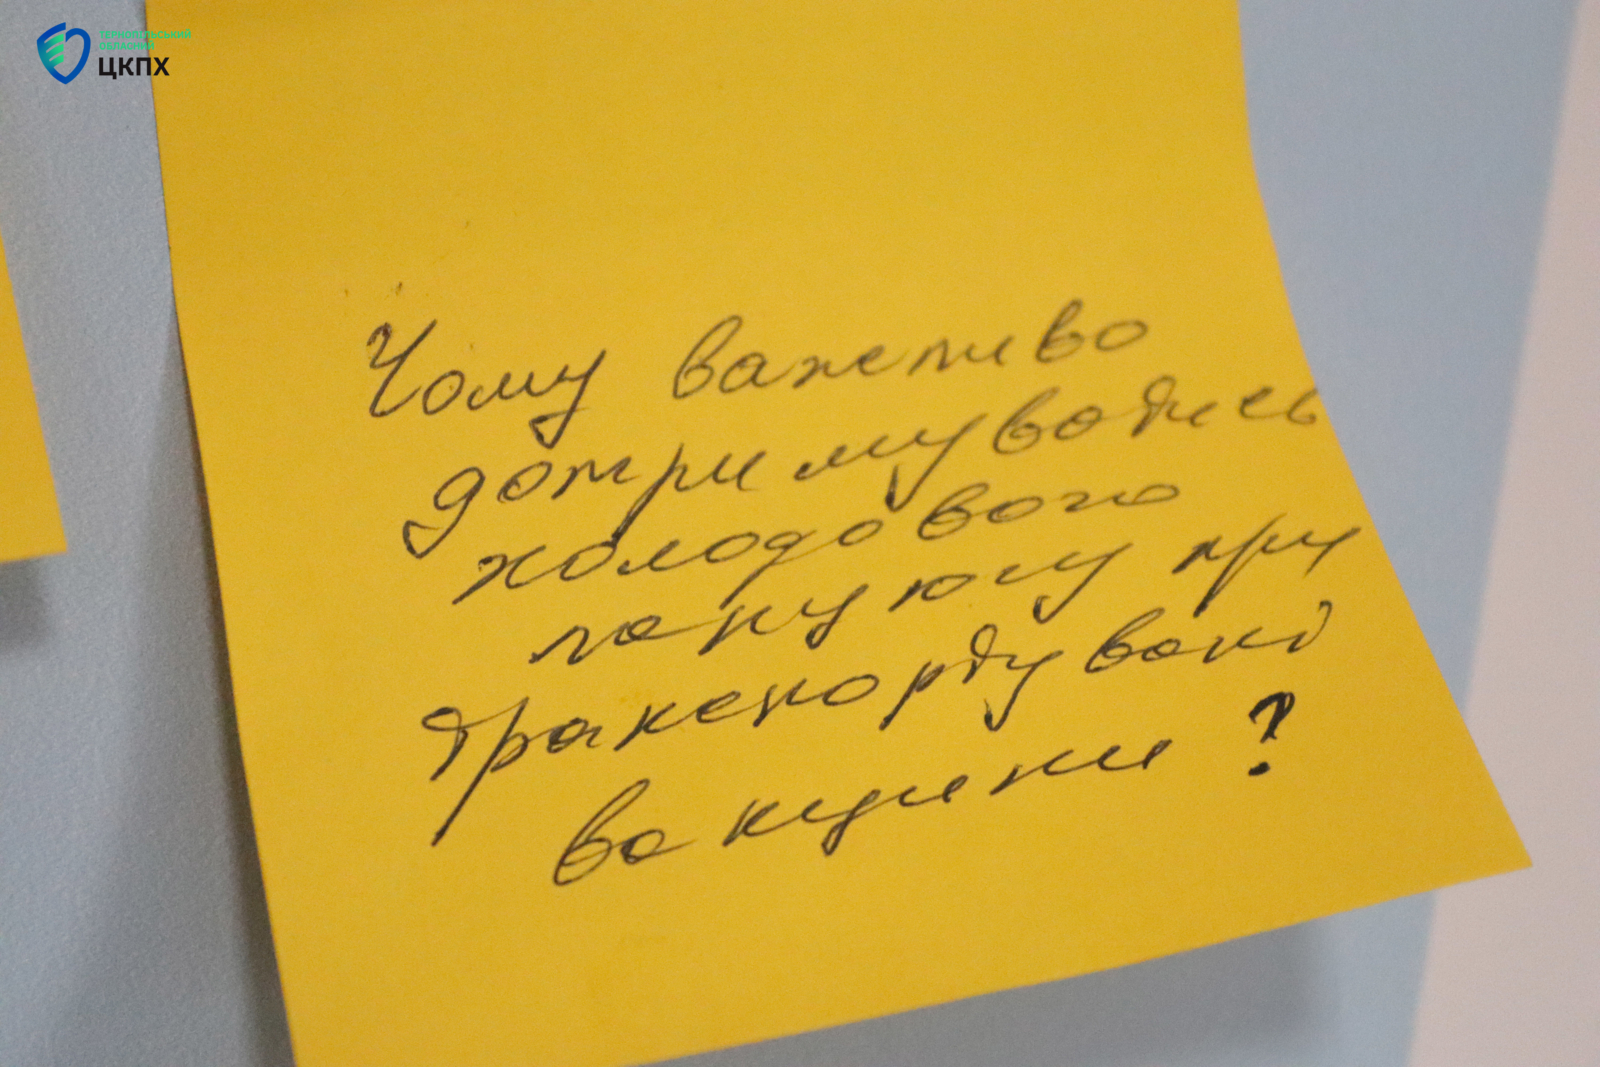 ТЕРНОПІЛЬСЬКИЙ
ОБЛАСНИЙ
ЦКПХ
Чому важливо
дотримуватись
холодового
ланцюгу при
транспортуванні
вакцини ?